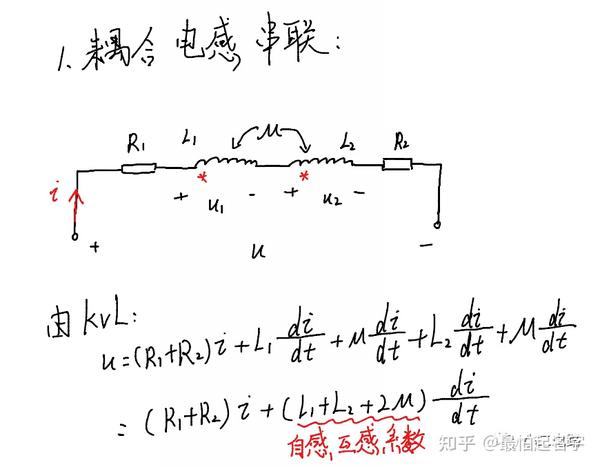 1. 耦合电感串联:
R₁ L₁ M L₂ R₂
i * *
+ u₁ - + u₂ -
+ u -
由KVL:
u=(R₁+R₂)i+L₁di/dt+Mdi/dt+L₂di/dt+Mdi/dt
=(R₁+R₂)i+(L₁+L₂+2M)di/dt
自感,互感系数
知乎 @最怕起名字